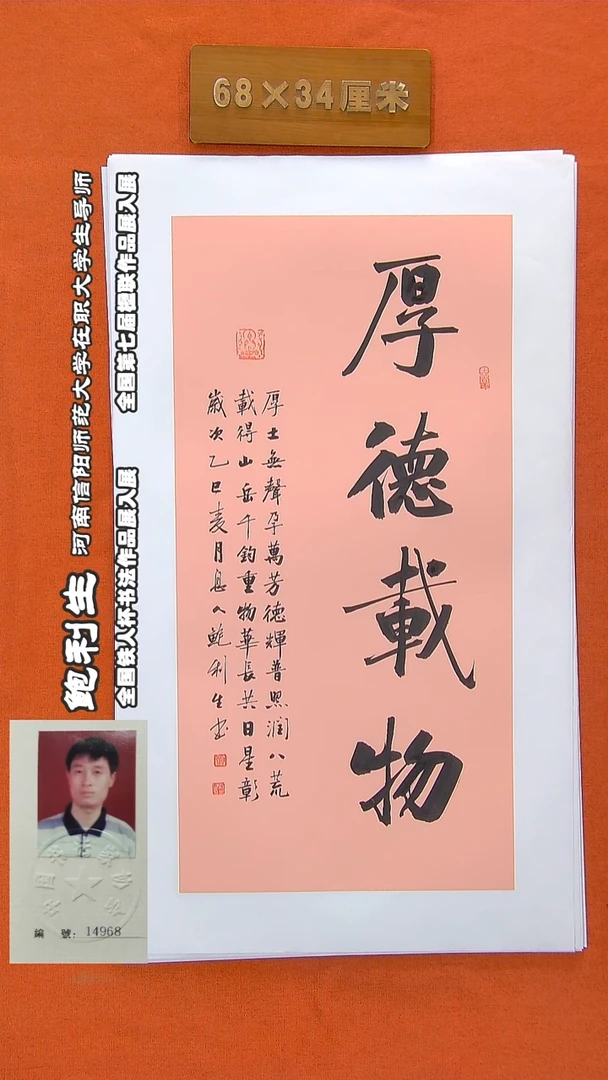 68×34厘米
河南信阳师范大学在职大学生导师
鲍利生
全国第七届楹联作品展入展
全国铁人杯书法作品展入展
厚德載物
厚土無聲孕萬芳德輝普照潤八荒
載得山岳千鈞重物華長共日星彰
歲次乙巳麦月息人鲍利生书
編 號：14968